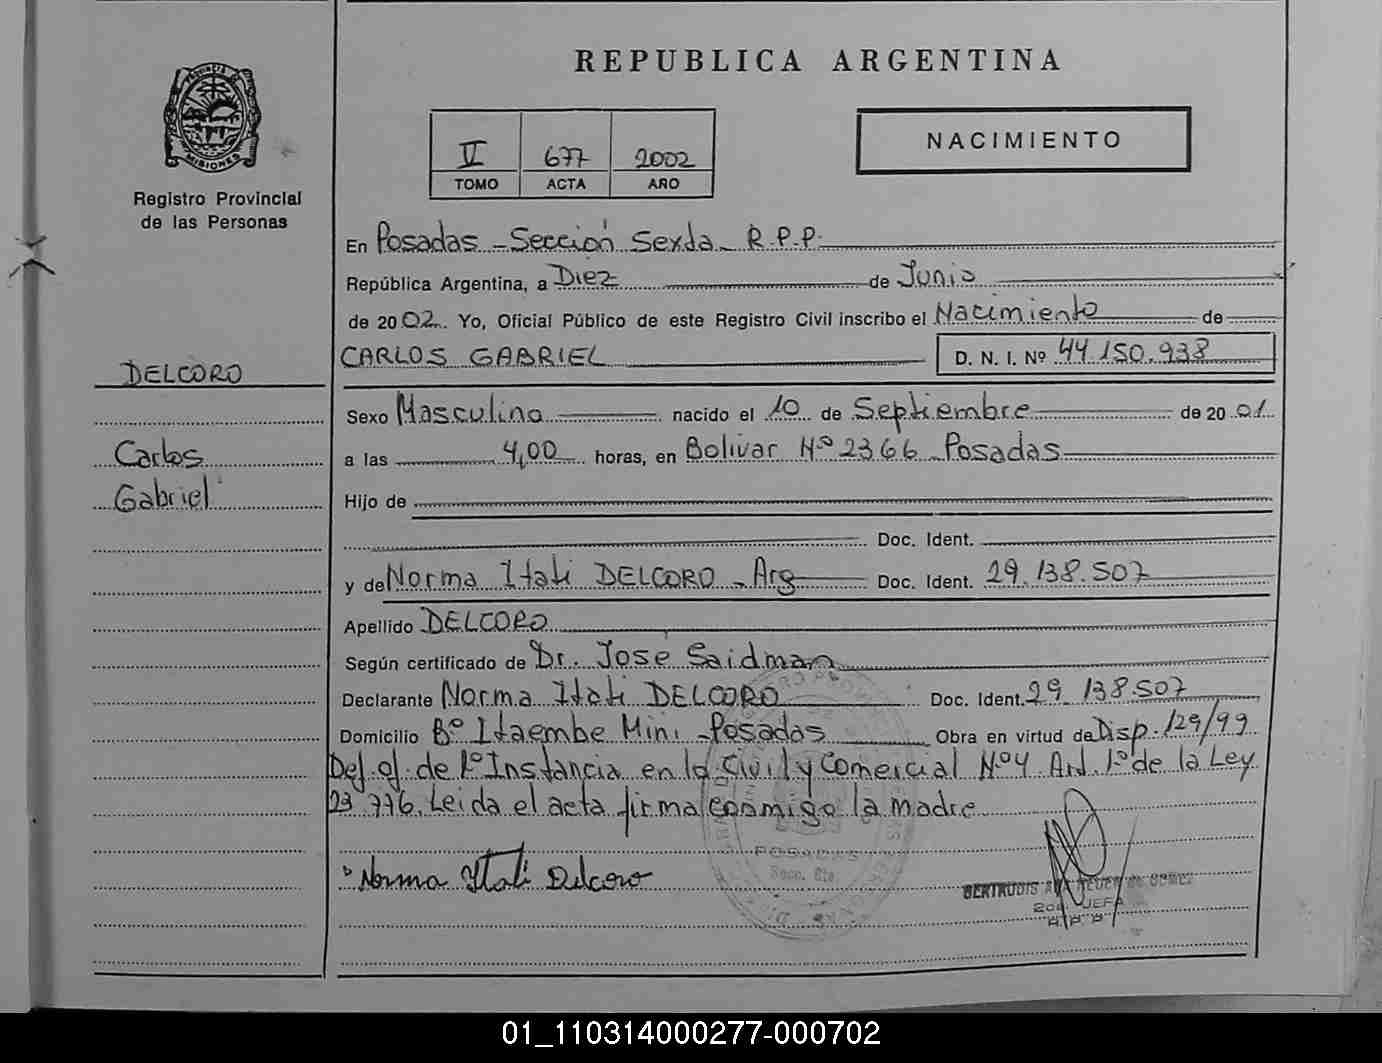 REPUBLICA ARGENTINA
PROVINCIA DE
MISIONES
Registro Provincial
de las Personas
II 677 2002
TOMO ACTA AÑO
NACIMIENTO
En Posadas - Sección Sexta - R.P.P.
República Argentina, a Diez de Junio
de 2002. Yo, Oficial Público de este Registro Civil inscribo el Nacimiento de
CARLOS GABRIEL D. N. I. Nº 44.150.938
DELCORO
Carlos
Gabriel
Sexo Masculino nacido el 10 de Septiembre de 2001
a las 4,00 horas, en Bolivar Nº 2366 Posadas
Hijo de
Doc. Ident.
y de Norma Itati DELCORO - Arg Doc. Ident. 29.138.507
Apellido DELCORO
Según certificado de Dr. Jose Saidman
Declarante Norma Itati DELCORO Doc. Ident. 29.138.507
Domicilio Bº Itaembe Mini - Posadas Obra en virtud de Disp. 129/99
Def. of. de 1º Instancia en lo Civil y Comercial Nº 4 Art. 1º de la Ley
23.776. Leida el acta firma conmigo la madre
Norma Itati Delcoro
POSADAS
Secc. 6ta.
GERTRUDIS DE GOMEZ
2da. JEFA
R.P.P.
01_110314000277-000702